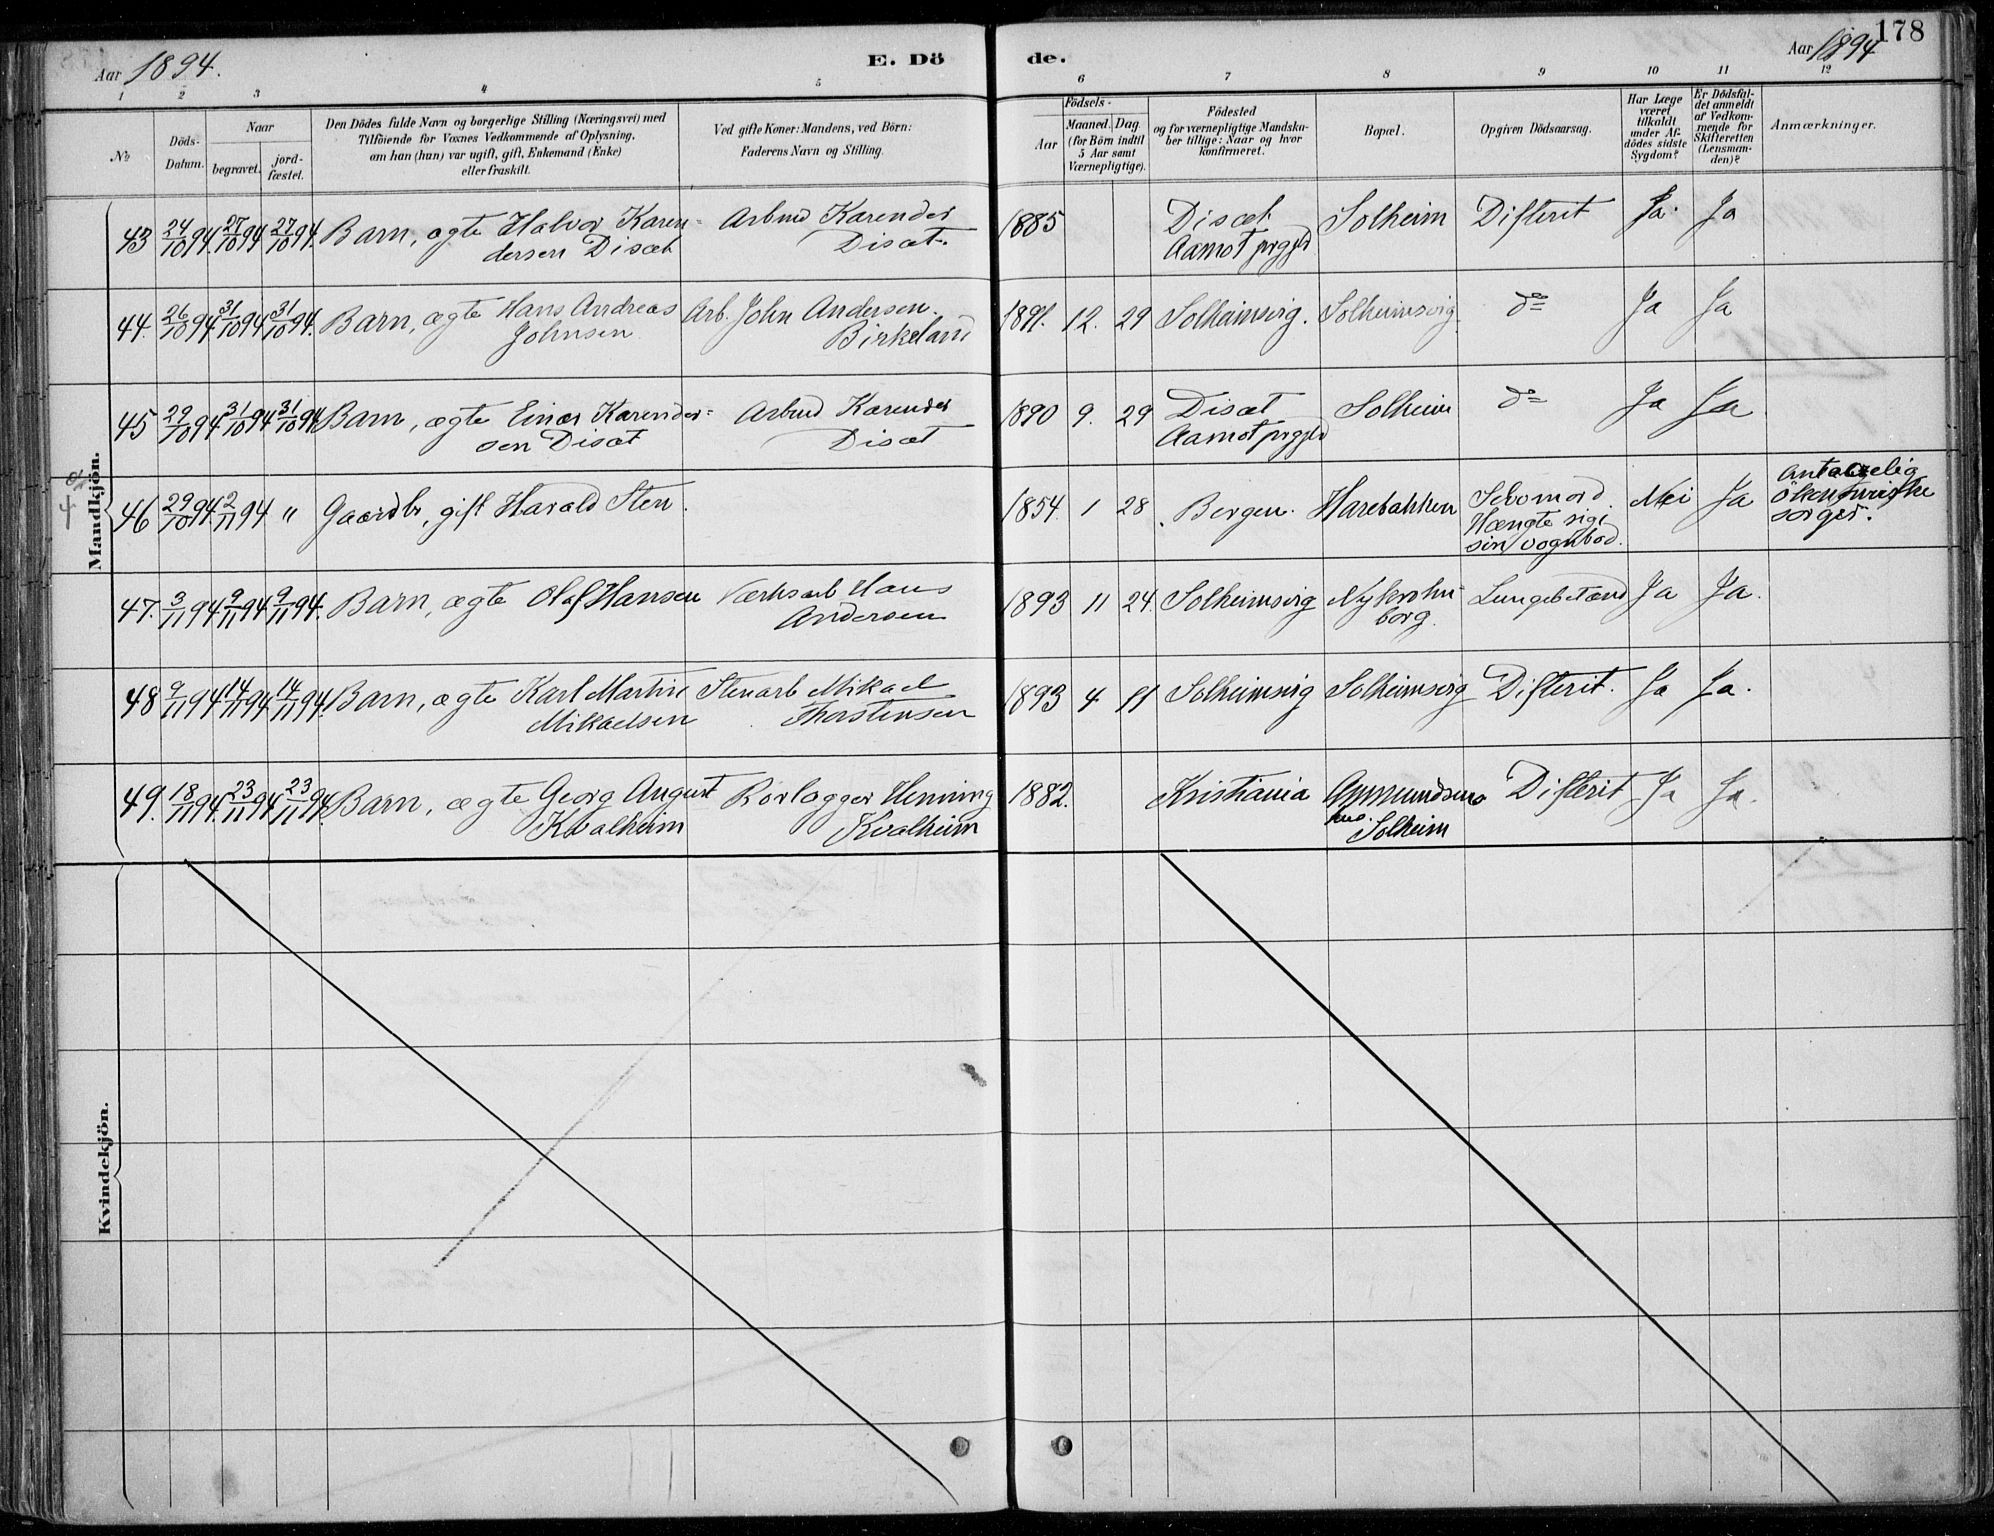 Aar 1894. E. Dö de. Aar 1894 178
1 2 3 4 5 6 7 8 9 10 11 12
№
Döds-
Datum.
Naar
begravet.
jord-
fæstet.
Den Dödes fulde Navn og borgerlige Stilling (Næringsvei) med
Tilföiende for Voxnes Vedkommende af Oplysning,
om han (hun) var ugift, gift, Enkemand (Enke)
eller fraskilt.
Ved gifte Koner: Mandens, ved Börn:
Faderens Navn og Stilling.
Födsels-
Aar
Maaned. Dag.
(for Börn indtil
5 Aar samt
Værnepligtige).
Födested
og for værnepligtige Mandska-
ber tillige: Naar og hvor
konfirmeret.
Bopæl.
Opgiven Dödsaarsag.
Har Læge
været
tilkaldt
under Af-
dödes sidste
Sygdom?
Er Dödsfal-
det anmeldt
af Vedkom-
mende for
Skifteretten
(Lensman-
den)?
Anmærkninger.
Mandkjön.
43 24/10 94. 27/10 94 27/10 94. Barn, ægte Halvor Karen- Arbmd Karender 1885 Disæt Solheim Difterit Ja. Ja
dersen Disæt Disæt. Aamot prgjld
44. 26/10 94 31/10 94 31/10 94. Barn, ægte Hans Andreas Arb. John Andersen. 1891. 12. 29 Solheimsvig. Solheimsvig d= Ja Ja
Johnsen Birkeland
45 29/10 94 31/10 94 31/10 94 Barn, ægte Einar Karender= Arbmd Karender 1890 9. 29 Disæt Solheim d= Ja Ja
sen Disæt Disæt Aamot prgjld
46 29/10 94. 2/11 94 " Gaardbr, gift Harald Sten. 1854. 1 28 Bergen. Harebakken Selvmord. Nei Ja Antagelig
Hængte sig i økonomiske
sin vognbod. sorger.
47. 3/11 94 9/11 94 9/11 94. Barn, ægte Olaf Hansen Værksarb Hans 1893 11 24. Solheimsvig Nykrohn- Lungebetænd Ja Ja.
Andersen borg.
48 9/11 94 14/11 94 14/11 94. Barn, ægte Karl Martin Stenarb Mikael 1893 4 11 Solheimsvig Solheimsvig Difterit. Ja Ja.
Mikaelsen Thorstensen
49. 18/11 94. 23/11 94 23/11 94. Barn, ægte Georg August Rørlægger Henning 1882. Kristiania Ammundsens Difterit Ja Ja.
Kvalheim Kvalheim hus. Solheim
Kvindekjön.